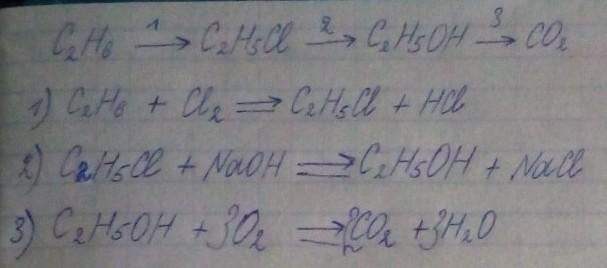 C₂H₆ —1→ C₂H₅Cl —2→ C₂H₅OH —3→ CO₂
1) C₂H₆ + Cl₂ ⟹ C₂H₅Cl + HCl
2) C₂H₅Cl + NaOH ⟹ C₂H₅OH + NaCl
3) C₂H₅OH + 3O₂ ⟹ 2CO₂ + 3H₂O